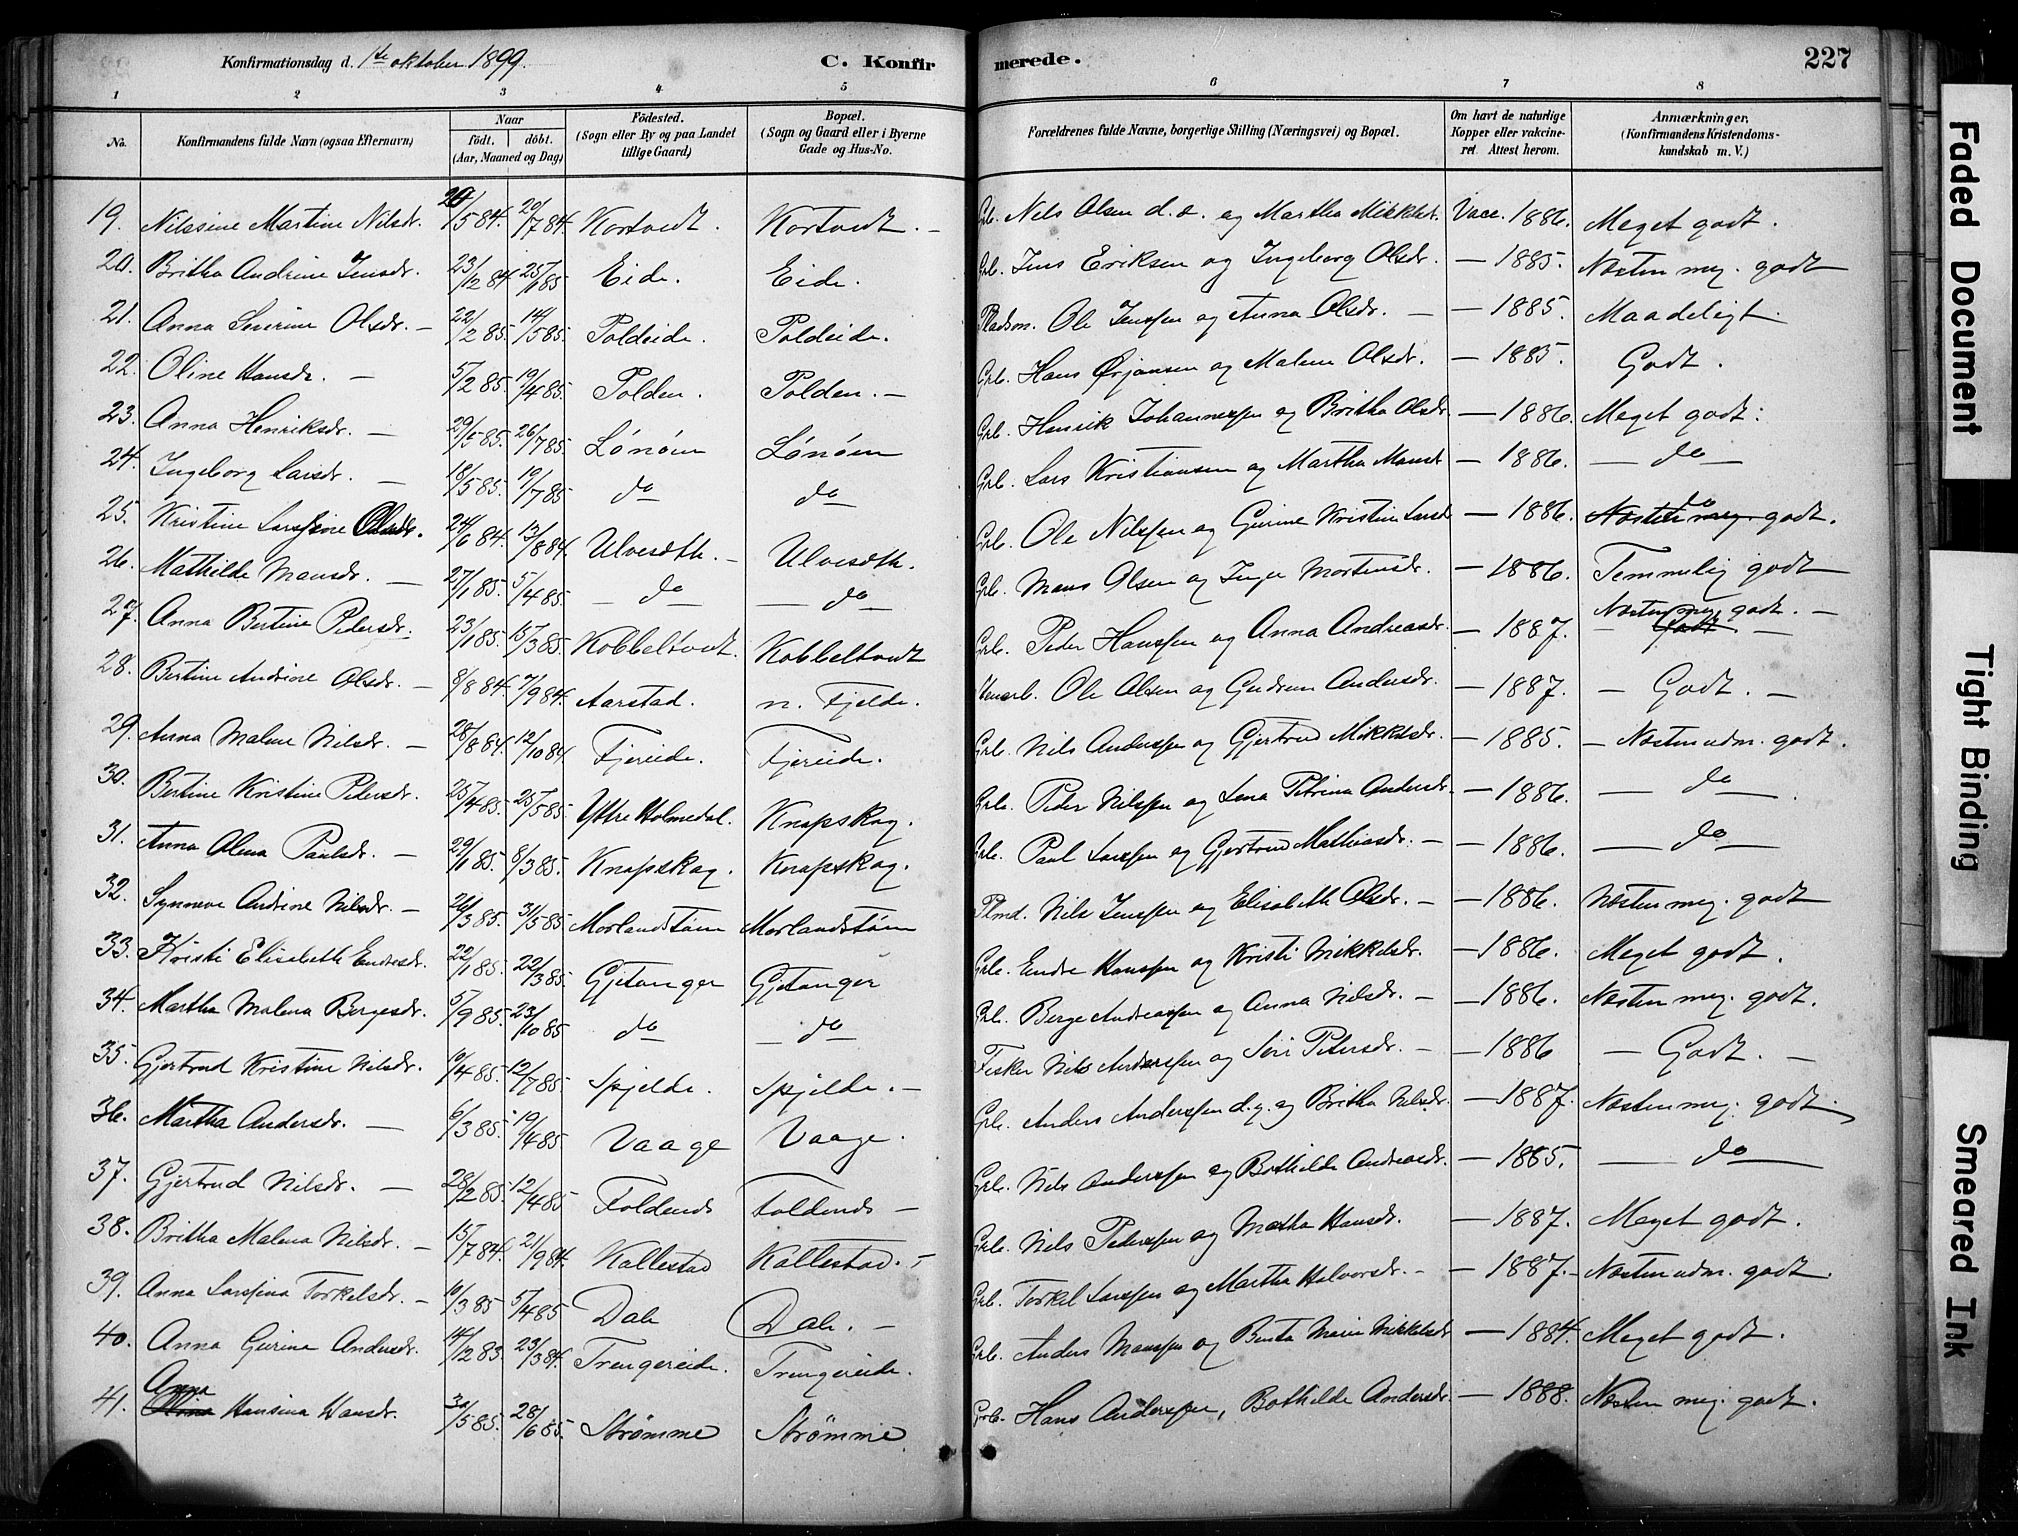 Konfirmationsdag d. 1ste oktober 1899. C. Konfirmerede. 227
1 2 3 4 5 6 7 8
No. Konfirmandens fulde Navn (ogsaa Efternavn) Naar født. døbt. (Aar, Maaned og Dag) Fødested. (Sogn eller By og paa Landet tillige Gaard) Bopæl. (Sogn og Gaard eller i Byerne Gade og Hus-No. Forældrenes fulde Navne, borgerlige Stilling (Næringsvei) og Bopæl. Om havt de naturlige Kopper eller vakcineret. Attest herom. Anmærkninger. (Konfirmandens Kristendomskundskab m. V.)
19. Nilssine Martine Nilsdr. /5 84. 20/7 84. Kortvedt. Kortvedt. – Grb. Nels Olsen d. e. og Martha Mikkelsd. Vacc. 1886. Meget godt.
20. Britha Andrine Jensdr. 23/12 84 25/1 85 Eide. Eide. Grb. Jens Eriksen og Ingeborg Olsdr. – 1885. Næsten meg. godt
21. Anna Severine Olsdr. – 22/2 85. 14/5 85. Poldeide. Poldeide. Pladsm. Ole Jenssen og Anna Olsdr. – – 1885. Maadeligt.
22. Oline Hansdr. – 5/2 85. 19/4 85. Polden. Polden. – Grb. Hans Ørjansen og Malene Olsdr. – 1885. Godt.
23. Anna Henriksdr. – 29/5 85. 26/7 85. Lønøen Lønøen Grb. Henrik Johannessen og Britha Olsdr – 1886. Meget godt.
24. Ingeborg Larsdr. – 18/5 85. 19/7 85 do do Grb. Lars Kristiansen og Martha Mansd – 1886. – do –
25. Kristine Larssine Olsdr. 24/6 84. 13/8 84. Ulvesæth. – Ulvesæth. Grb. Ole Nilssen og Gurine Kristine Larsd – 1886. do Næsten meg. godt.
26. Mathilde Mansdr. – 27/1 85. 5/4 85. – do – – do – Grb. Mans Olsen og Inger Mortensdr. – 1886. Temmelig godt
27. Anna Bertine Pedersdr. 23/1 85. 15/3 85. Kobbeltvedt. Kobbeltvedt Grb. Peder Hanssen og Anna Andreasdr. – 1887. Næsten meg. godt. – – Godt. –
28. Bertine Andrine Olsdr. – 8/8 84. 7/9 84. Aarstad. n. Fjelde. Ole Olsen og Gudrun Andersdr. – 1887. – Godt. –
29. Anna Malene Nilsdr. – 28/8 84. 12/10 84. Fjereide. Fjereide. Grb. Nils Anderssen og Gjertrud Mikkelsdr. – 1885. – Næsten udm. godt.
30. Bertine Kristine Pedersdr. 25/4 85. 25/5 85. Yttre Holmedal. Knapskog. Grb. Peder Nilssen og Lena Petrina Andersdr. – 1886. – do –
31. Anna Olena Paulsdr. – 29/1 85. 8/3 85. Knapskog. Knapskog. Grb. Paul Larssen og Gjertrud Mathiasdr. – – 1886. – do –
32. Synneve Andrine Nilsdr. – 26/3 85. 31/5 85 Morlandstøen Morlandstøen Plmd. Nils Jenssen og Elisabeth Olsdr. – – 1886. Næsten meg. godt
33. Kristi Elisabeth Endresdr. 22/1 85. 22/3 85. Gjetanger Gjetanger Grb. Endre Hanssen og Kristi Mikkelsdr. – 1886. Meget godt.
34. Martha Malena Bergesdr. 5/9 85. 23/10 85 do – do – Grb. Berge Andreassen og Anna Nilsdr. – – 1886. Næsten meg. godt.
35. Gjertrud Kristine Nilsdr. 9/4 85. 12/7 85. Spjelde. Spjelde. – Fisker Nils Anderssen og Siri Petersdr. – – 1886 – Godt. –
36. Martha Andersdr. – 6/3 85. 19/4 85 Vaage Vaage. Grb. Anders Anderssen d. y. og Britha Nilsdr. – 1887. Næsten meg. godt.
37. Gjertrud Nilsdr. – 28/2 85. 12/4 85 Foldends Foldends – Grb. Nils Anderssen og Bothilde Andreasdr. – 1885. – do –
38. Britha Malena Nilsdr. – 15/7 84. 21/9 84. Kallestad Kallestad. – Grb. Nils Pederssen og Martha Hansdr. – 1887. Meget godt.
39. Anna Larssina Torkelsdr. – 10/3 85 5/4 85 Dale Dale. – Grb. Torkel Larssen og Martha Halvorsdr. – – 1887. – Næsten udm. godt.
40. Anna Gurina Andersdr. 14/12 83. 23/3 84. Trengereide. Trengereide. Grb. Anders Manssen og Berita Marie Mikkelsdr – 1884. Meget godt.
41. Anna Olina Hansina Hansdr. 30/5 85. 28/6 85. Strømme Strømme Grb. Hans Anderssen, Bothilde Andersdr – 1888. Næsten meg. godt.
Faded Document
Tight Binding
Smeared Ink